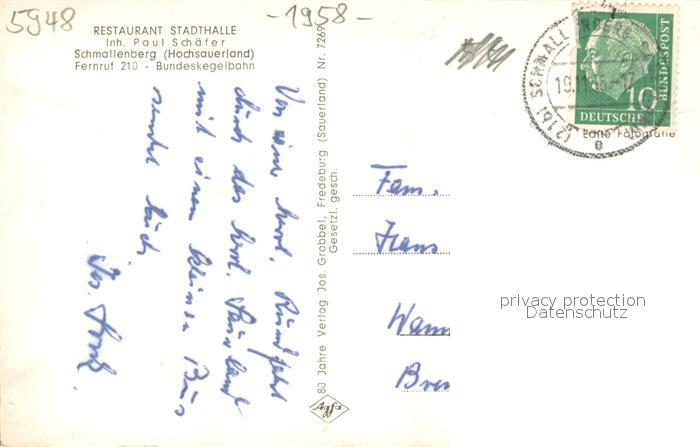 5948
-1958-
RESTAURANT STADTHALLE
Inh. Paul Schäfer
Schmallenberg (Hochsauerland)
Fernruf 210 - Bundeskegelbahn
Von einer
durch das Sauerland
mit einem kleinen Bus
sendet Euch
Jos.
80 Jahre Verlag Jos. Grobbel, Fredeburg (Sauerland) Nr. 7269
Gesetzl. gesch.
Agfa
(21b) SCHMALLENBERG
19.11.
e
10
DEUTSCHE
BUNDESPOST
Echte Fotografie
Fam.
Hans
Wann
privacy protection
Datenschutz